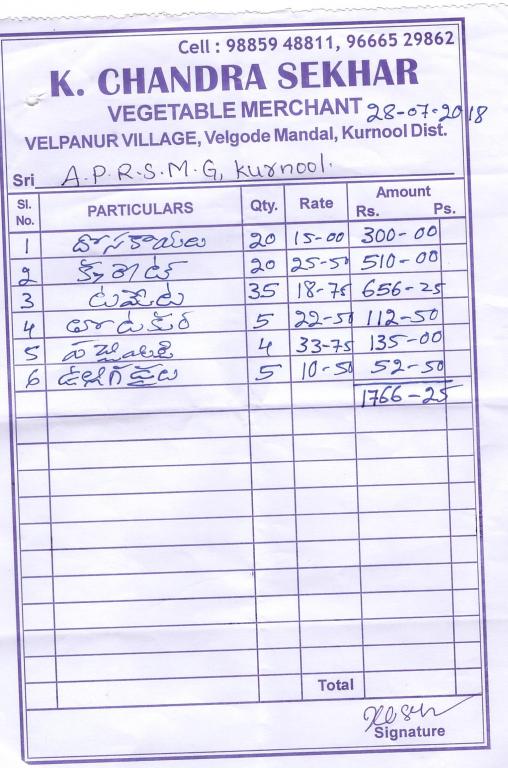 Cell : 98859 48811, 96665 29862
K. CHANDRA SEKHAR
VEGETABLE MERCHANT 28-07-2018
VELPANUR VILLAGE, Velgode Mandal, Kurnool Dist.
Sri A.P.R.S.M.G, Kurnool.
Sl. No. PARTICULARS Qty. Rate Amount Rs. Ps.
1 దోసకాయలు 20 15-00 300-00
2 క్యారెట్ 20 25-50 510-00
3 టమోట 35 18-75 656-25
4 5 22-50 112-50
5 4 33-75 135-00
6 ఉల్లిగడ్డలు 5 10-50 52-50
1766-25
Total
Signature